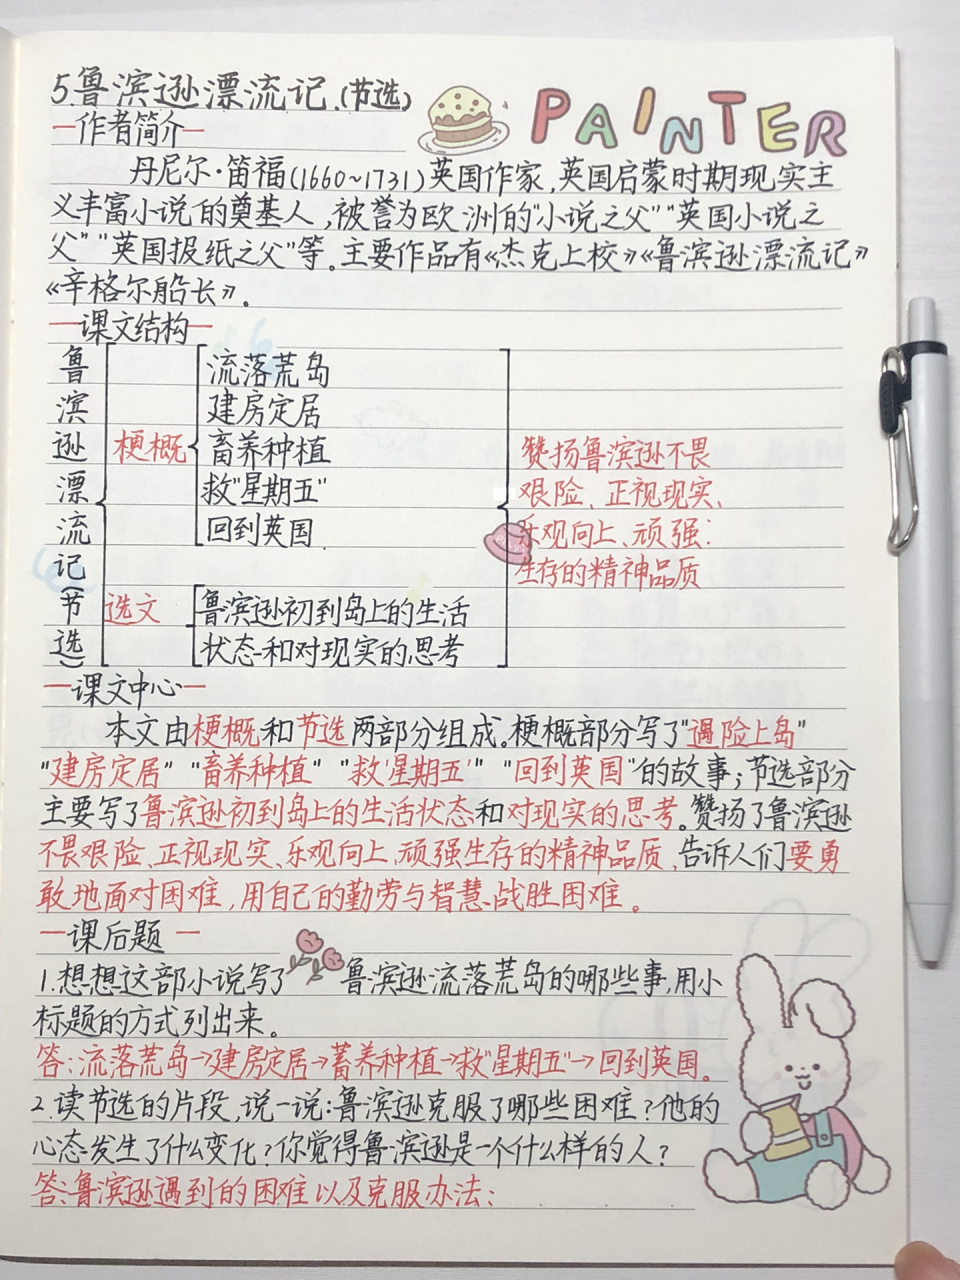 5.鲁滨逊漂流记.(节选)
PAINTER
一作者简介一
丹尼尔·笛福(1660~1731)英国作家,英国启蒙时期现实主
义丰富小说的奠基人,被誉为欧洲的"小说之父""英国小说之
父""英国报纸之父"等.主要作品有《杰克上校》《鲁滨逊漂流记》
《辛格尔船长》.
一课文结构一
鲁滨逊漂流记(节选)
梗概
流落荒岛
建房定居
畜养种植
救"星期五"
回到英国.
选文
鲁滨逊初到岛上的生活
状态和对现实的思考
赞扬鲁滨逊不畏
艰险、正视现实、
乐观向上、顽强
生存的精神品质
一课文中心一
本文由梗概和节选两部分组成.梗概部分写了"遇险上岛"
"建房定居""畜养种植""救'星期五'""回到英国"的故事;节选部分
主要写了鲁滨逊初到岛上的生活状态和对现实的思考。赞扬了鲁滨逊
不畏艰险、正视现实、乐观向上、顽强生存的精神品质,告诉人们要勇
敢地面对困难,用自己的勤劳与智慧战胜困难。
一课后题一
1.想想这部小说写了鲁滨逊流落荒岛的哪些事,用小
标题的方式列出来。
答:流落荒岛→建房定居→蓄养种植→救"星期五"→回到英国。
2.读节选的片段,说一说:鲁滨逊克服了哪些困难?他的
心态发生了什么变化?你觉得鲁滨逊是一个什么样的人?
答:鲁滨逊遇到的困难以及克服办法: